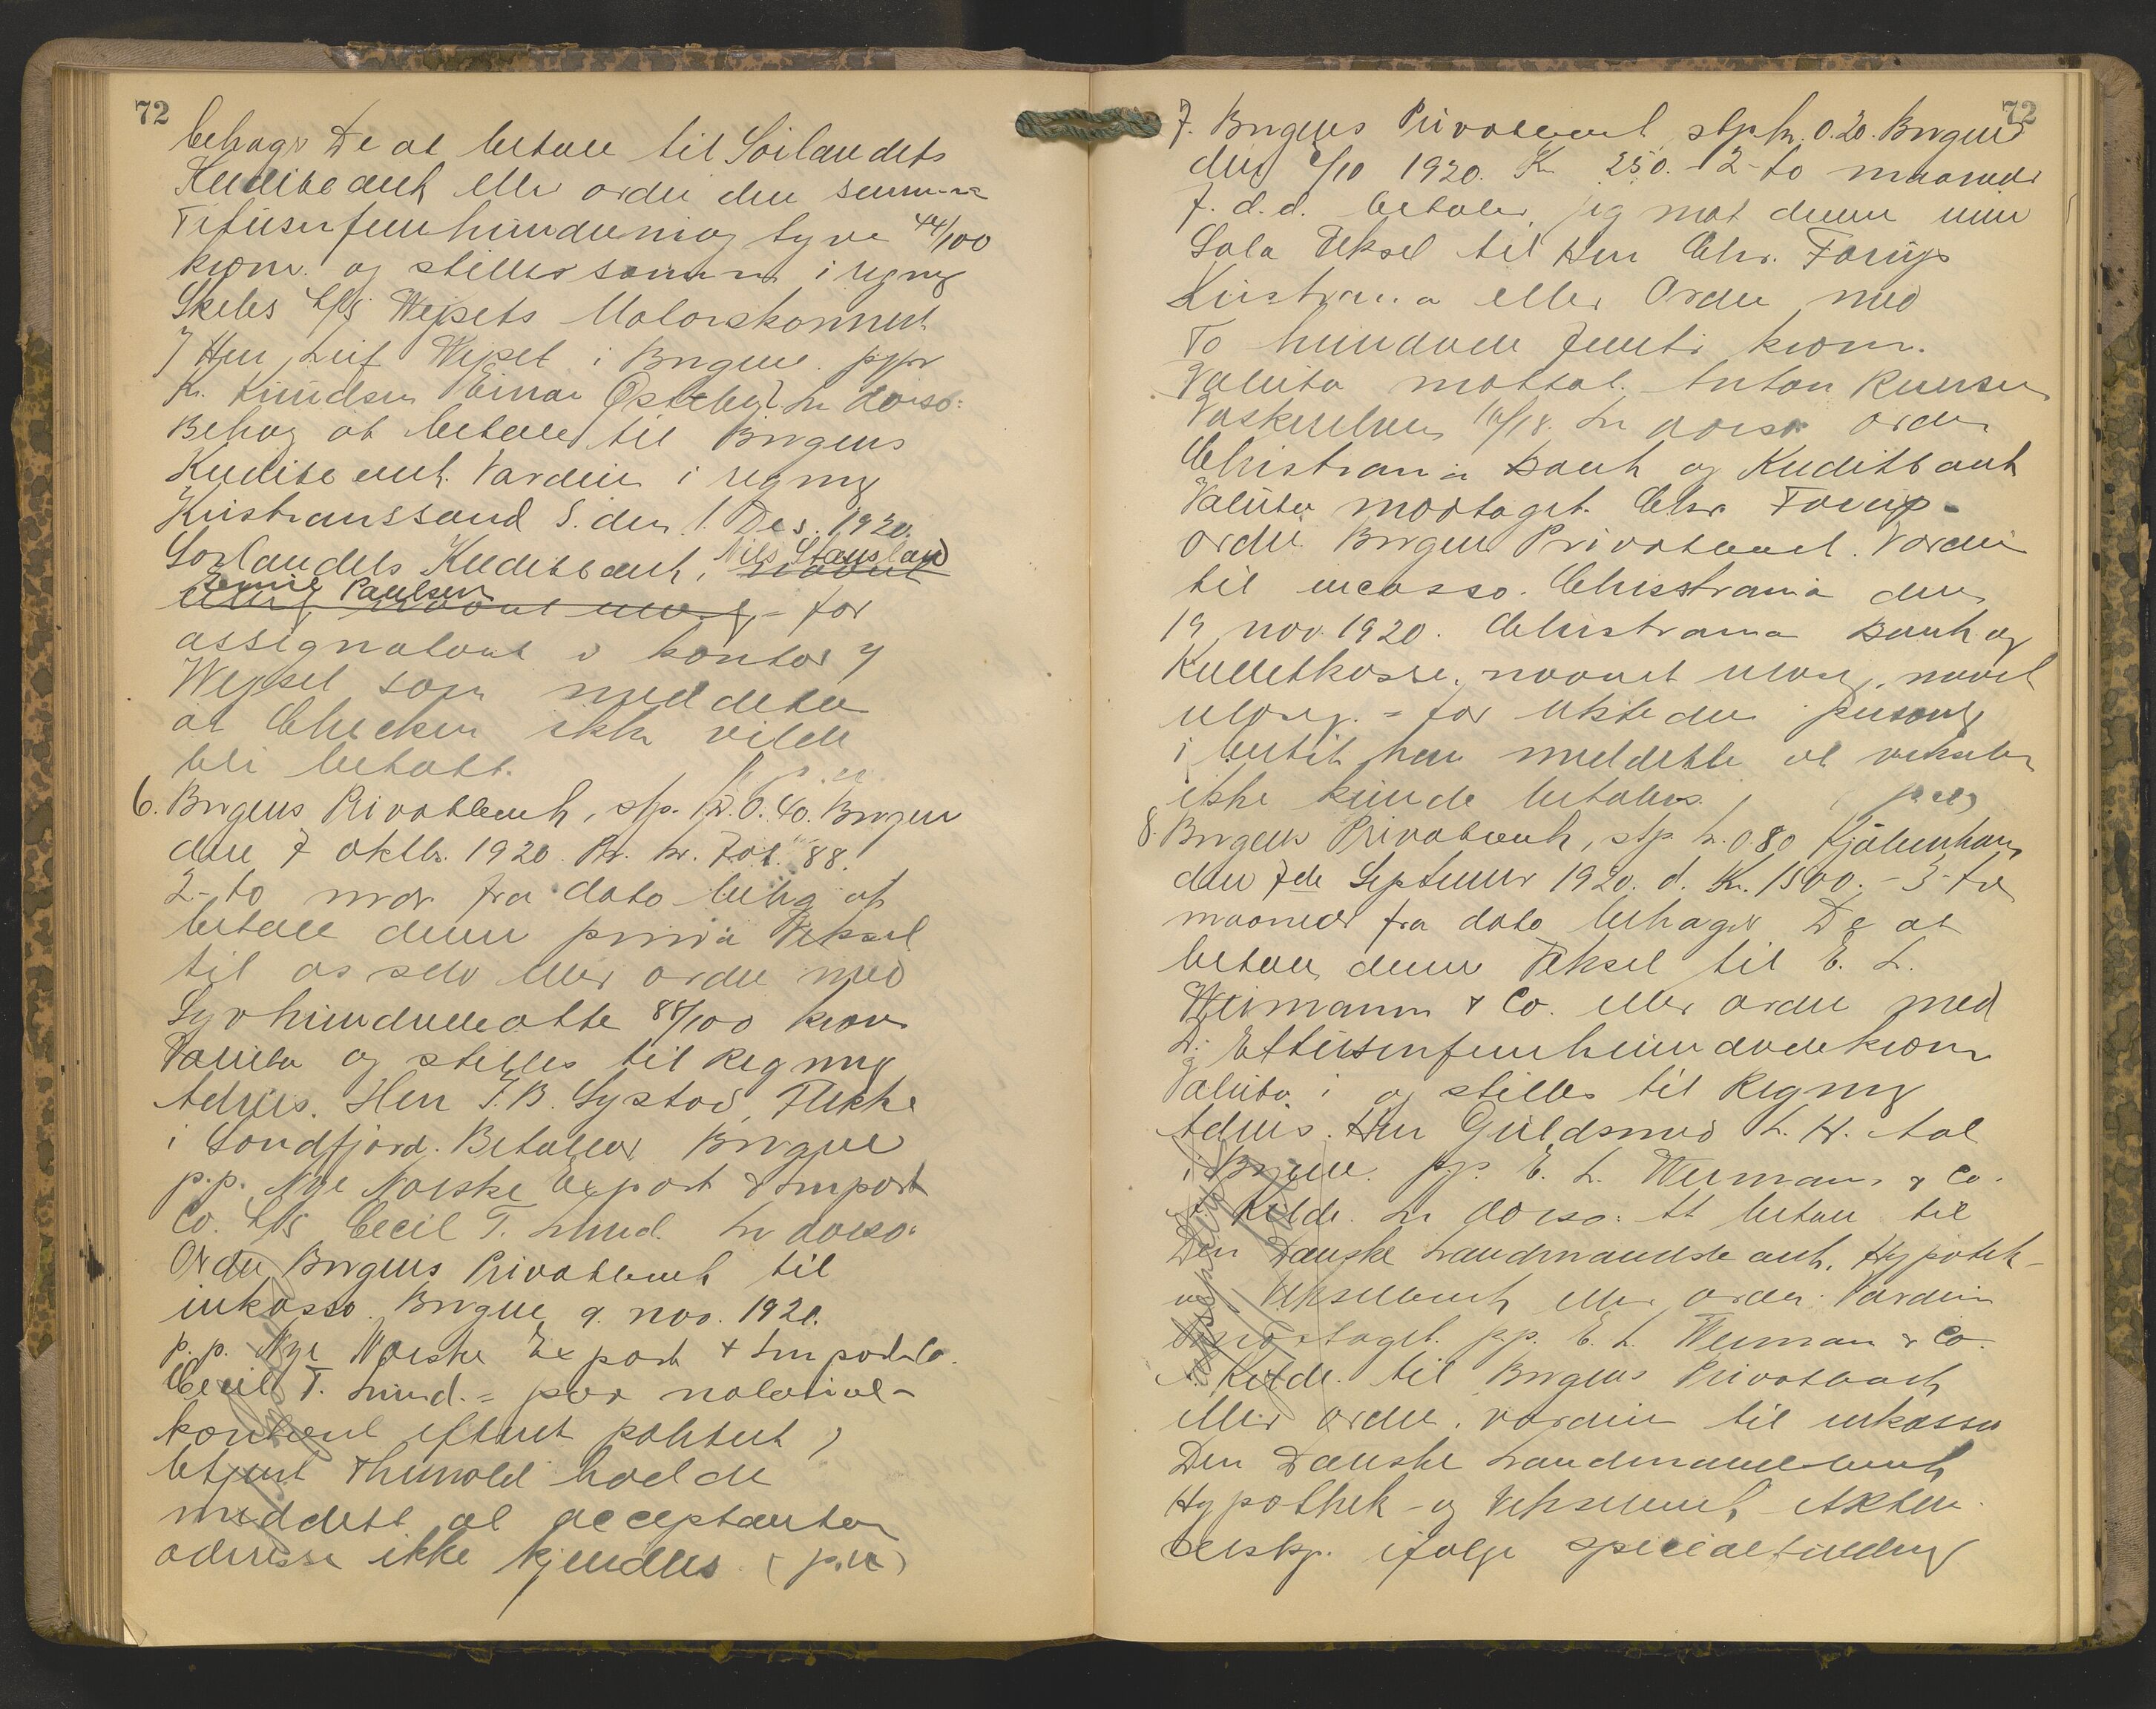 72
behager De at betale til Sörlandets
Kreditbank eller ordre den summa
Titusenfemhundredeniogtyve 44/100
kroner og stilles summa i regning
Skibs A/S Wejsets Motorskonnert
Herr Leif Wejset i Bergen. pr pr
K. Knudsen Einar Østebø? In dorso:
Behag at betale til Bergens
Kreditbank. Værdien i regning
Kristianssand S. den 1. Des. 1920.
Sørlandets Kreditbank, Nils Stausland
Emil Paulsen = for
assignatens kontor
Wejset som meddelte
at Checken ikke vilde
bli betalt.
6. Bergens Privatbank, stp. kr. 0.40. Bergen
den 7 oktbr. 1920. Kr. 708.88.
2 - to mdr. fra dato behag at
betale denne prima Veksel
til os selv eller ordre med
Syvhundredeotte 88/100 kroner
Valuta og stilles til Regning
Adviis. Herr J. B. Systad, Flekke
i Søndfjord. Betales Bergen
p.p. Nye Norske Export & Import
Co. A/S Cecil T. Lund. In dorso:
Ordre Bergens Privatbank til
inkasso. Bergen 9. nov. 1920.
p.p. Nye Norske Export & Import Co.
Cecil T. Lund. = paa notarial-
kontoret efterat politiet v
betjent Thunold hadde
meddelt at acceptanten
adresse ikke kjendtes (p.n)
72
7. Bergens Privatbank, stp. kr. 0.20. Bergen
den 2/10 1920. Kr. 250. - 2 - to maaneder
f. d. d. betaler jeg mot denne min
Sola Veksel til Herr Chr. Torup
Kristiania eller Ordre med
To hundrede femti kroner.
Valuta mottat. Anton Knudsen
Vaskerelven 16/18. In dorso ordre
Christiania Bank og Kreditbank
Valuta modtaget. Chr. Torup.
ordre Bergens Privatbank. Værdien
til incasso. Christiania den
19 nov. 1920. Christiania Bank og
Kreditkasse. navnet ulæs., navnet
ulæs. = for utstederen personlig
i butik han meddelte at vekselen
ikke kunde betales. (p.n)
8. Bergens Privatbank, stp. kr. 0.80 Kjøbenhavn
den 7de September 1920. d. Kr. 1500. - 3 - tre
maaneder fra dato behager De at
betale denne Veksel til E. L.
Weimann & Co. eller ordre med
D: Ettusenfemhundredekroner
Valuta i og stilles til Regning
Adviis. Herr Guldsmed L. H. Aal
i Bergen. pp. E. L. Weimann & Co.
Kilde. In dorso: At betale til
Den Danske Landmandsbank, Hypothek-
og Vekselbank eller ordre. Værdien
modtaget. p.p. E. L. Weiman & Co.
Kilde. til Bergens Privatbank
eller ordre. værdien til inkasso
Den Danske Landmandsbank
Hypothek- og Vekselbank, Aktie
selskp. ifølge specialfuldmg